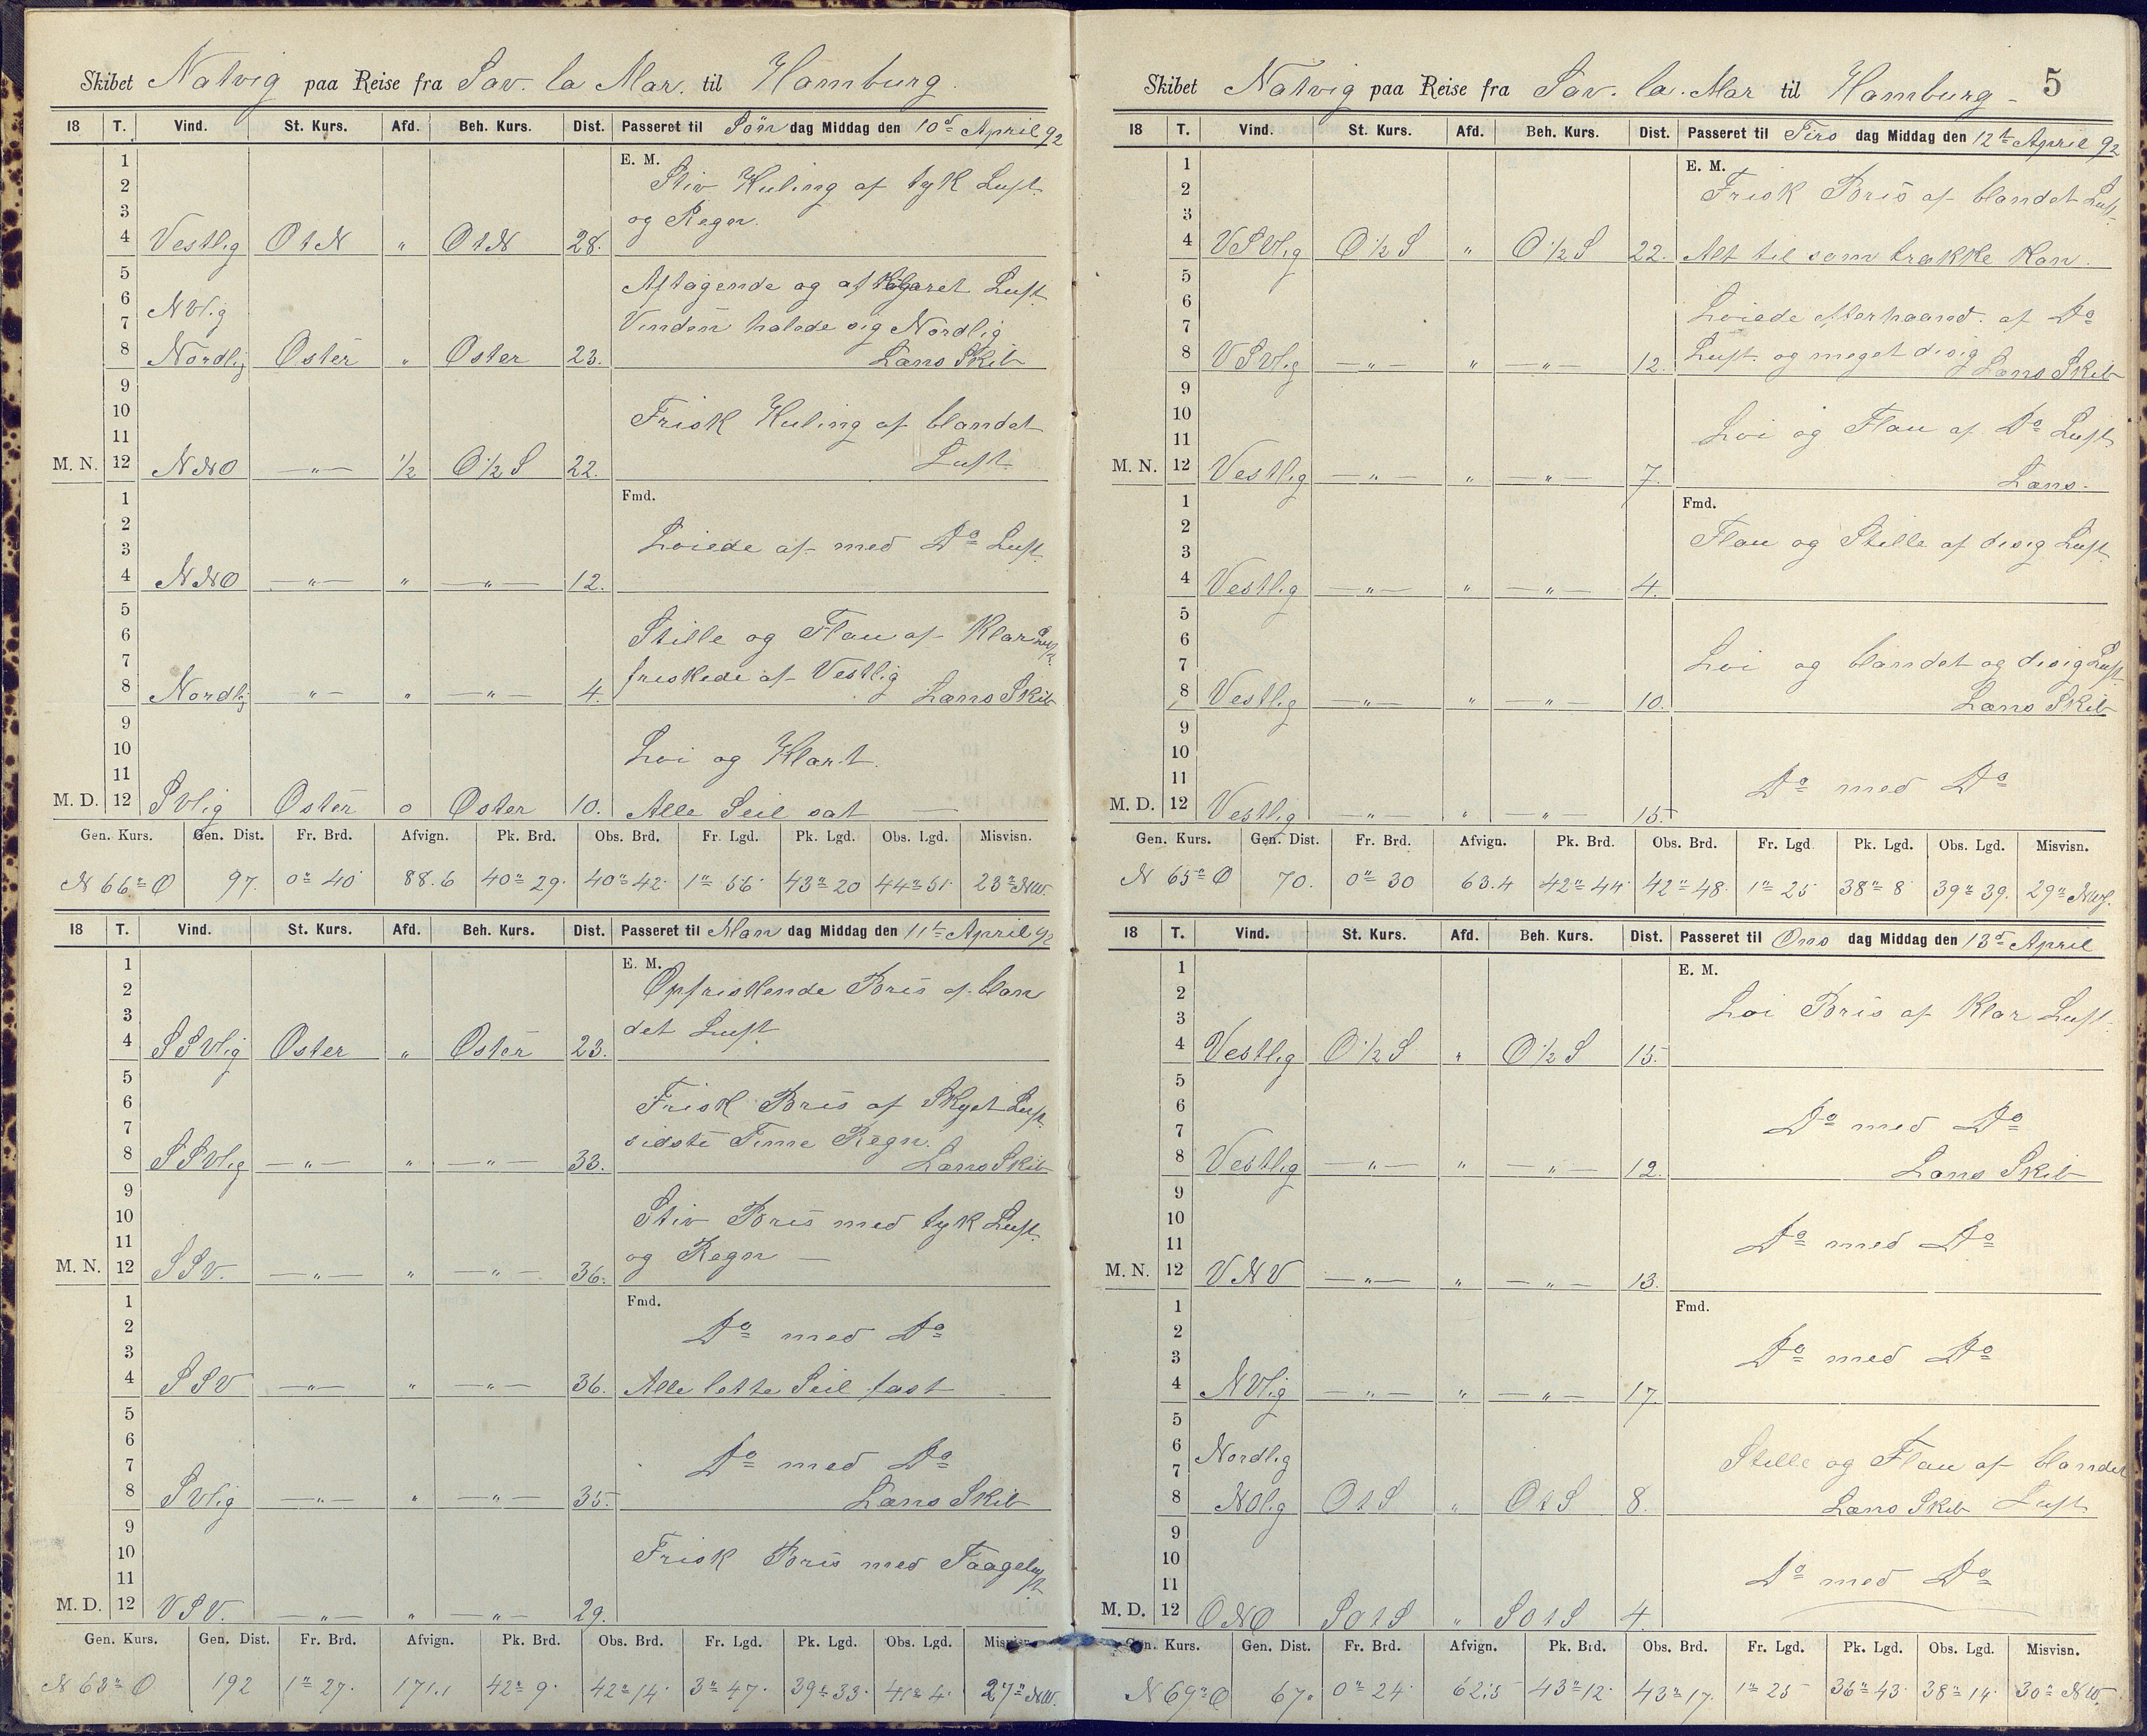 Skibet Natvig paa Reise fra Sav. la Mar. til Hamburg.
18 T. Vind. St. Kurs. Afd. Beh. Kurs. Dist. Passeret til Søn dag Middag den 10d April 92
1 E. M.
2 Stiv Kuling af tyk Luft
3 og Regn.
4 Vestlig O t N " O t N 28.
5 Aftagende og afklaret Luft
6 NVlig
7 Vinden halede sig Nordlig
8 Nordlig Oster " Oster 23. Læns Skib
9
10 Frisk Kuling af blandet
11
M. N. 12 NNO — " — 1/2 O 1/2 S 22. Luft
1 Fmd.
2
3 Løiede af med Do Luft
4 NNO — " — " — " — 12.
5
6 Stille og Flau af Klar Luft
7 friskede af Vestlig
8 Nordlig — " — " — " — 4. Læns Skib
9
10 Løi og Klart.
11
M. D. 12 SVlig Oster o Oster 10. Alle Seil sat —
Gen. Kurs. Gen. Dist. Fr. Brd. Afvign. Pk. Brd. Obs. Brd. Fr. Lgd. Pk. Lgd. Obs. Lgd. Misvisn.
N 66° O 97. 0° 40' 88.6 40° 29' 40° 42' 1° 56' 43° 20 44° 51' 23° NW.
18 T. Vind. St. Kurs. Afd. Beh. Kurs. Dist. Passeret til Man dag Middag den 11te April 92
1 E. M.
2 Opfriskende Bris af blan
3 det Luft
4 SSVlig Oster " Oster 23.
5
6 Frisk Bris af Skyet Luft
7 sidste Time Regn.
8 SSVlig — " — " — " — 33. Læns Skib
9
10 Stiv Bris med tyk Luft
11 og Regn —
M. N. 12 SSV. — " — " — " — 36.
1 Fmd.
2 Do med Do
3
4 SSV — " — " — " — 36. Alle lette Seil fast
5
6
7 Do med Do
8 SVlig — " — " — " — 35. Læns Skib
9
10 Frisk Bris med Taageluft
11
M. D. 12 VSV. — " — " — " — 29.
Gen. Kurs. Gen. Dist. Fr. Brd. Afvign. Pk. Brd. Obs. Brd. Fr. Lgd. Pk. Lgd. Obs. Lgd. Misvisn.
N 63° O 192 1° 27' 171.1 42° 9' 42° 14' 3° 47' 39° 33' 41° 4' 27° NW.
Skibet Natvig paa Reise fra Sav. la. Mar til Hamburg – 5
18 T. Vind. St. Kurs. Afd. Beh. Kurs. Dist. Passeret til Tirs dag Middag den 12te April 92
1 E. M.
2 Frisk Bris af blandet Luft
3
4 VSVlig O 1/2 S " O 1/2 S 22. Alt til som trække kan.
5
6 Løiede efterhaand. af Do
7
8 VSVlig — " — " — " — 12. Luft. og meget disig Læns Skib
9
10
11 Løi og Flau af Do Luft
M. N. 12 Vestlig — " — " — " — 7. Læns.
1 Fmd.
2 Flau og Stille af disig Luft
3
4 Vestlig — " — " — " — 4.
5
6
7 Løi og blandet og disig Luft
8 Vestlig — " — " — " — 10. Læns Skib
9
10
11 Do med Do
M. D. 12 Vestlig — " — " — " — 15
Gen. Kurs. Gen. Dist. Fr. Brd. Afvign. Pk. Brd. Obs. Brd. Fr. Lgd Pk. Lgd. Obs. Lgd. Misvisn.
N 65° O 70. 0° 30 63.4 42° 44' 42° 48' 1° 25 38° 8' 39° 39. 29° NW.
18 T. Vind. St. Kurs. Afd. Beh. Kurs. Dist. Passeret til Ons dag Middag den 13d April
1 E. M.
2 Løi Bris af Klar Luft
3
4 Vestlig O 1/2 S " O 1/2 S 15.
5
6 Do med Do
7
8 Vestlig — " — " — " — 12. Læns Skib
9
10
11 Do med Do
M. N. 12 VNV — " — " — " — 13.
1 Fmd.
2
3 Do med Do
4 NVlig — " — " — " — 17.
5
6 Nordlig
7 Stille og Flau af blandet
8 NOlig O t S " O t S 8. Læns Skib Luft
9
10
11 Do med Do
M. D. 12 ONO SO t S " SO t S 4.
Gen. Kurs. Gen. Dist. Fr. Brd. Afvign. Pk. Brd. Obs. Brd. Fr. Lgd. Pk. Lgd. Obs. Lgd. Misvisn.
N 69° O 67. 0° 24' 62.5 43° 12' 43° 17. 1° 25 36° 43' 38° 14' 30° NW.